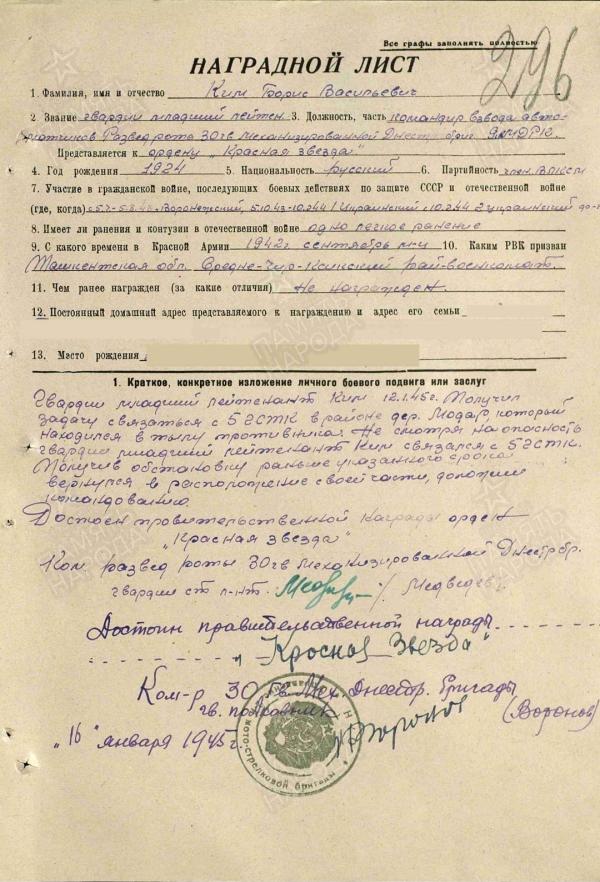 Все графы заполнять полностью
296
НАГРАДНОЙ ЛИСТ
1. Фамилия, имя и отчество Ким Борис Васильевич
2. Звание гвардии младший лейтен. 3. Должность, часть командир взвода авто-
матчиков Развед рота 30 гв. механизированной Днестр. бриг.
Представляется к ордену „Красная звезда"
4. Год рождения 1924 5. Национальность русский 6. Партийность член ВЛКСМ
7. Участие в гражданской войне, последующих боевых действиях по защите СССР и отечественной войне
(где, когда) Воронежский, 5.10.43-10.2.44 1 Украинский с 10.2.44 2 украинский
8. Имеет ли ранения и контузии в отечественной войне одно легкое ранение
9. С какого времени в Красной Армии 1942 г. сентябрь м-ц 10. Каким РВК призван
Ташкентская обл. Средне-Чир-Кчикский рай-военкомат.
11. Чем ранее награжден (за какие отличия) Не награжден.
12. Постоянный домашний адрес представляемого к награждению и адрес его семьи
13. Место рождения
1. Краткое, конкретное изложение личного боевого подвига или заслуг
Гвардии младший лейтенант Ким 12.1.45г. Получил
задачу связаться с 5 гСТК в районе дер. Модар, который
находился в тылу противника. Не смотря на опасность
гвардии младший лейтенант Ким связался с 5 гСТК.
Получив обстановку раньше указанного срока
вернулся в расположение своей части, доложил
командованию.
Достоен правительственной награды орден
„Красная звезда"
Ком. развед роты 30 гв. механизированной Днестр бр.
гвардии ст. л-нт. /Медведев/
Достоин правительственной награды
„Красная Звезда"
Ком-р 30 Гв. Мех. Днестр. Бригады
гв. полковник (Воронов)
„16" января 1945г.
мото-стрелковой бригады
ПАМЯТЬ НАРОДА